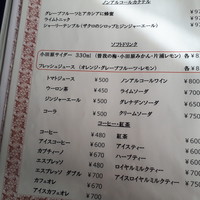 ノンアルコールカクテル
グレープフルーツとアカシアに蜂蜜
ライムトニック
シャーリーテンプル(ザクロのシロップとジンジャーエール)
ソフトドリンク
小田原サイダー 330ml (曽我の梅・小田原みかん・片浦レモン) 各¥8
フレッシュジュース (オレンジ・グレープフルーツ・レモン) 各¥8
トマトジュース ¥500
ノンアルコールワイン ¥800
ウーロン茶 ¥450
ライムソーダ ¥700
ジンジャーエール ¥500
グレナデンソーダ ¥700
コーラ ¥500
クリームソーダ ¥750
コーヒー・紅茶
コーヒー ¥480
紅茶
アイスコーヒー ¥600
アイスティー
カプチーノ ¥670
ハーブティー
エスプレッソ ¥600
ロイヤルミルクティー
エスプレッソ ダブル ¥700
アイスロイヤルミルクティー ¥750
カフェオレ ¥670
アイスカフェオレ ¥700